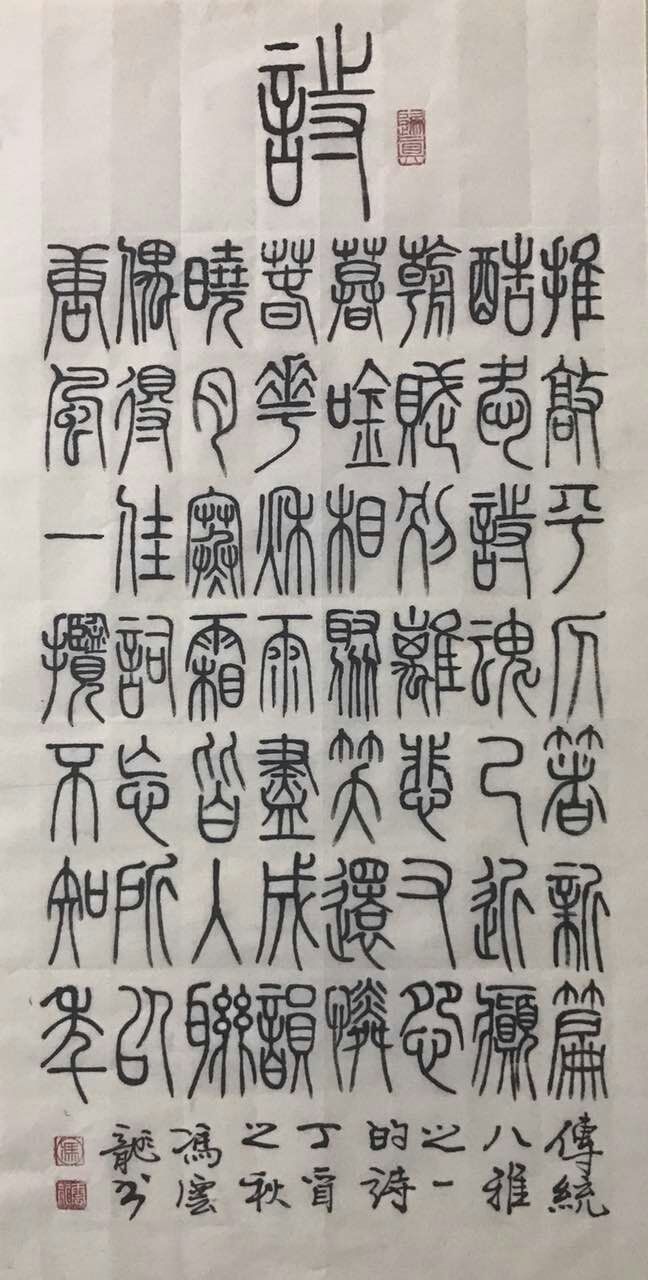 詩
推敲平仄著新篇
酷志詩魂久近癲
朝賦別離悲又怨
暮吟相聚笑還憐
春花秋雨盡成韻
曉月寒霜皆入聯
偶得佳詞忘所以
唐風一攬不知年
傳統
八雅
之一
的詩
丁酉
之秋
馮雲
龍書